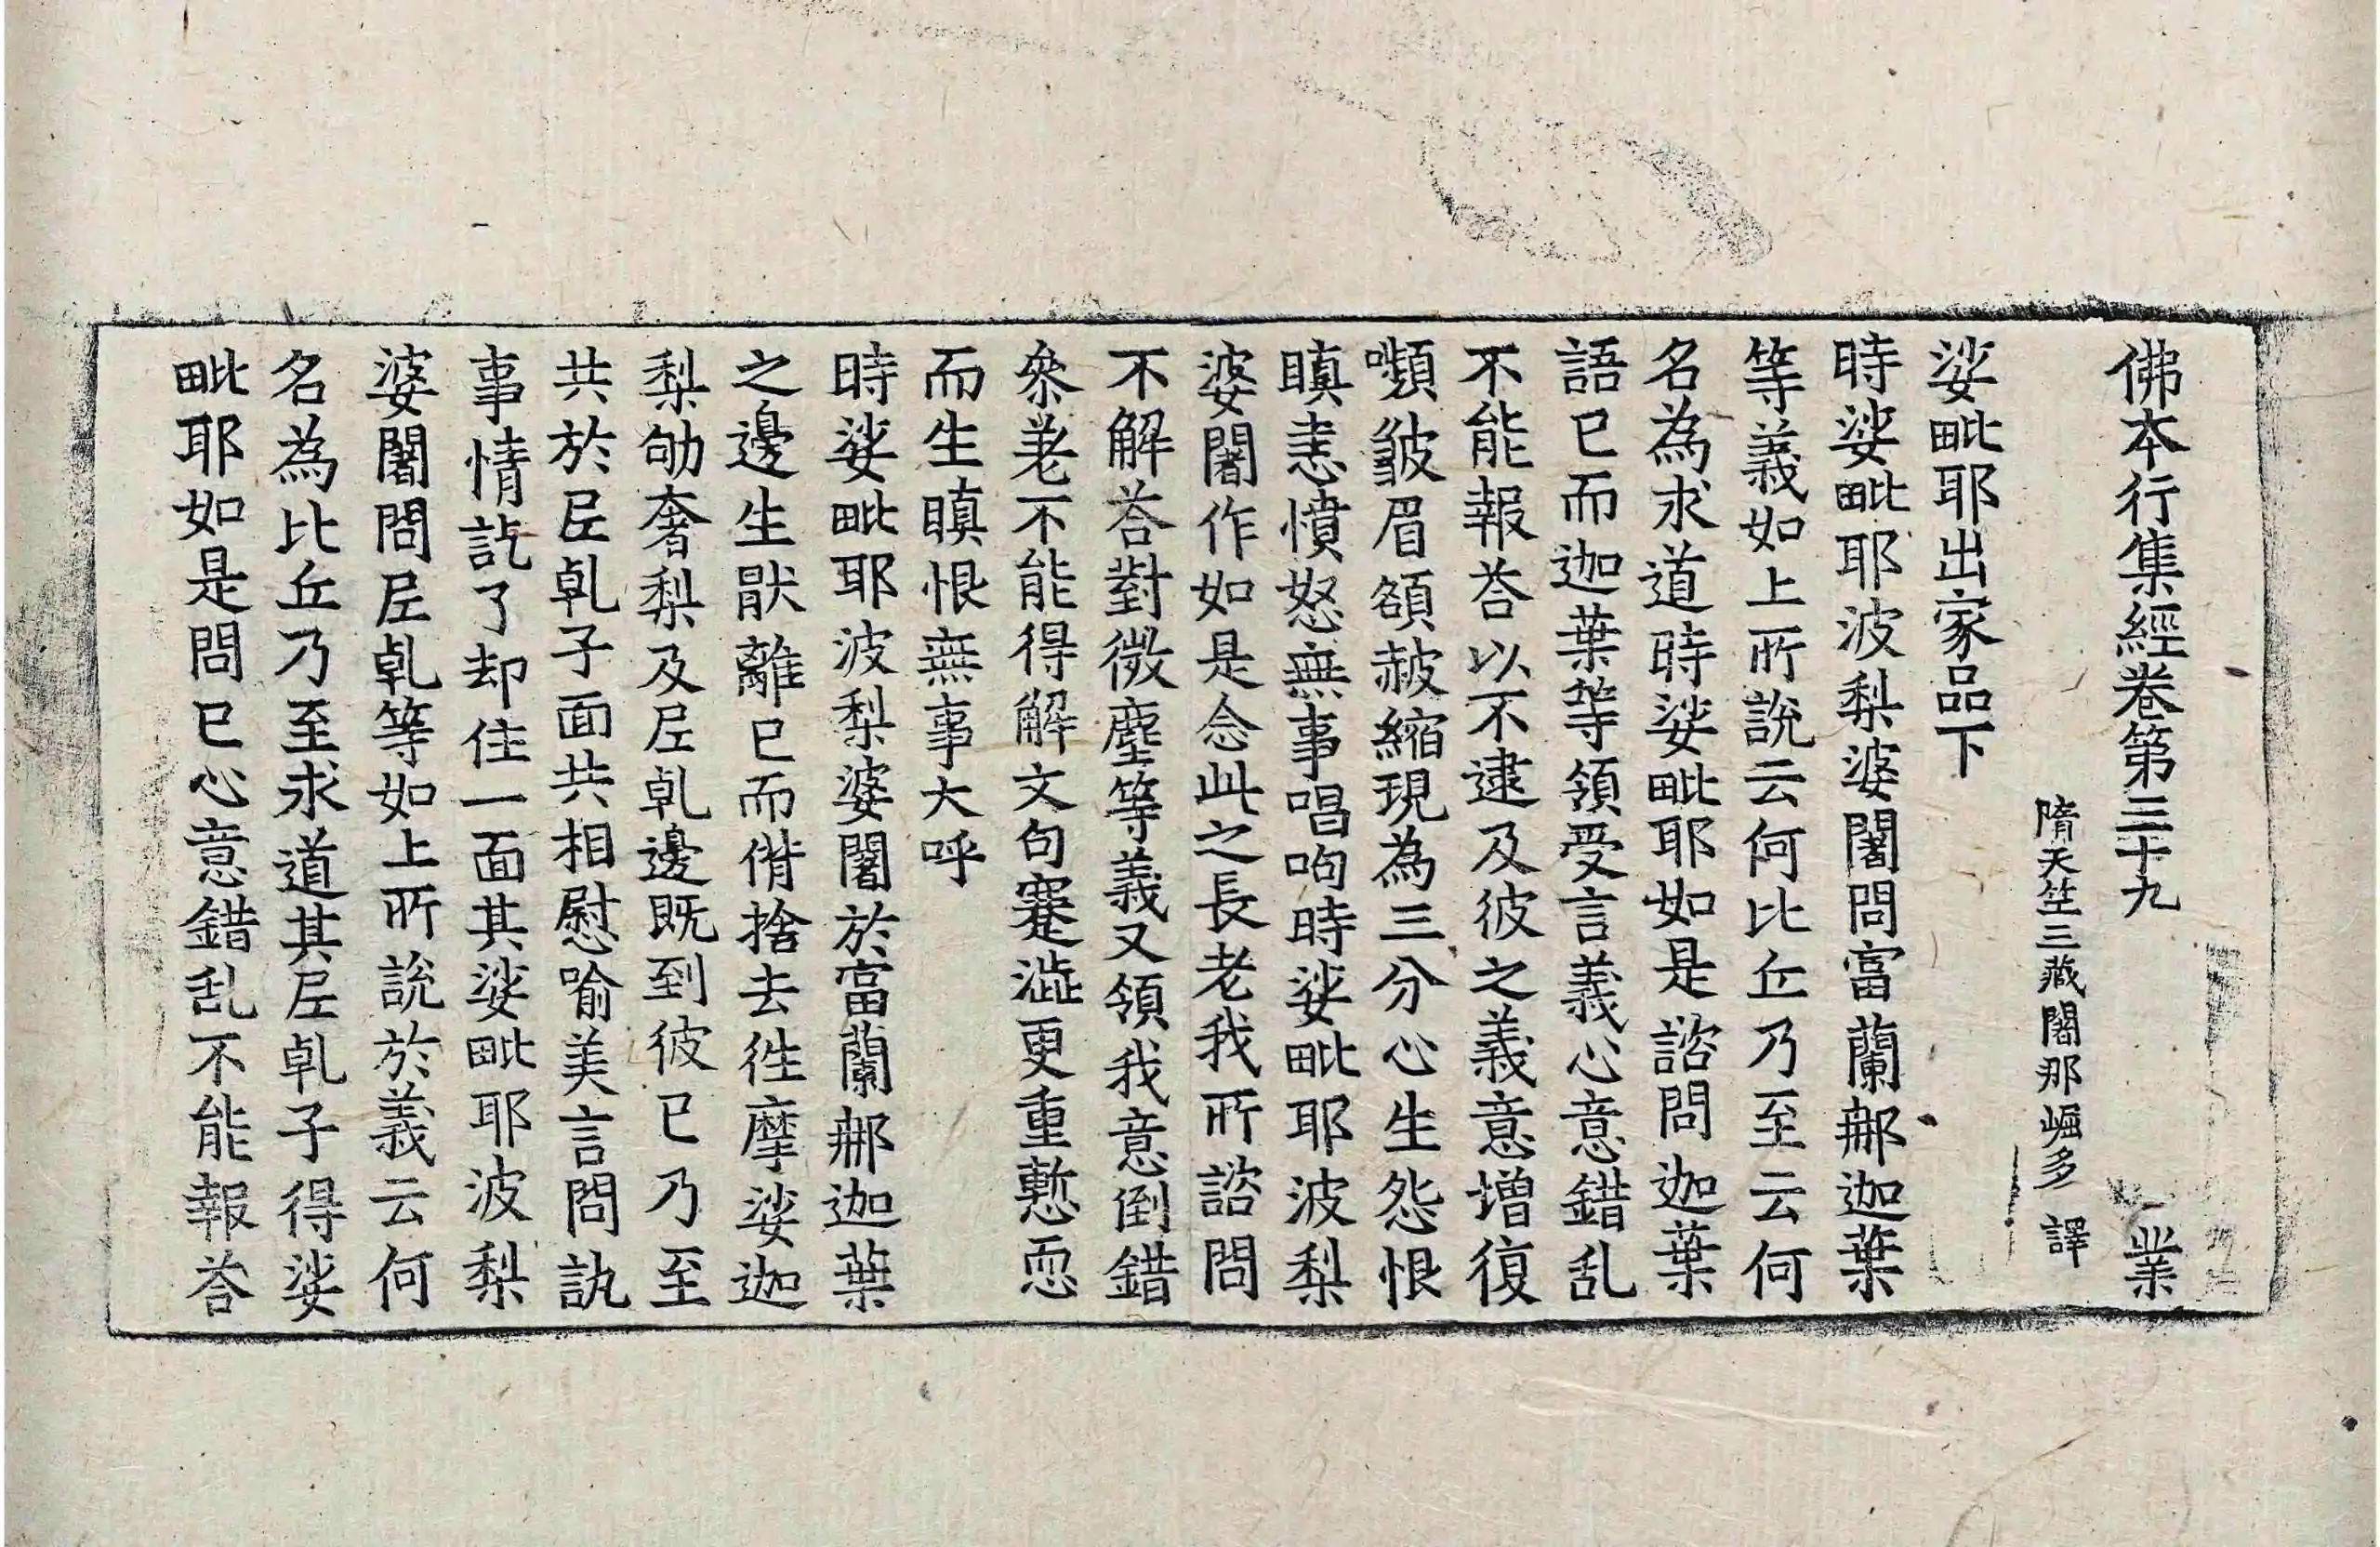 佛本行集經卷第三十九　業
隋天竺三藏闍那崛多　譯
娑毗耶出家品下
時娑毗耶波梨婆闍問富蘭那迦葉
等義如上所說云何比丘乃至云何
名為求道時娑毗耶如是諮問迦葉
語已而迦葉等領受言義心意錯乱
不能報荅以不逮及彼之義意增復
嚬皺眉頟赦縮現為三分心生怨恨
瞋恚憤怒無事唱呴時娑毗耶波梨
婆闍作如是念此之長老我所諮問
不解荅對微塵等義又領我意倒錯
叅差不能得解文句蹇澁更重慙恧
而生瞋恨無事大呼
時娑毗耶波梨婆闍於富蘭那迦葉
之邊生猒離已而偝捨去徃摩娑迦
梨劬奢梨及尼乹邊既到彼已乃至
共於尼乹子面共相慰喻美言問訊
事情訖了却住一面其娑毗耶波梨
婆闍問尼乹等如上所說於義云何
名為比丘乃至求道其尼乹子得娑
毗耶如是問已心意錯乱不能報荅